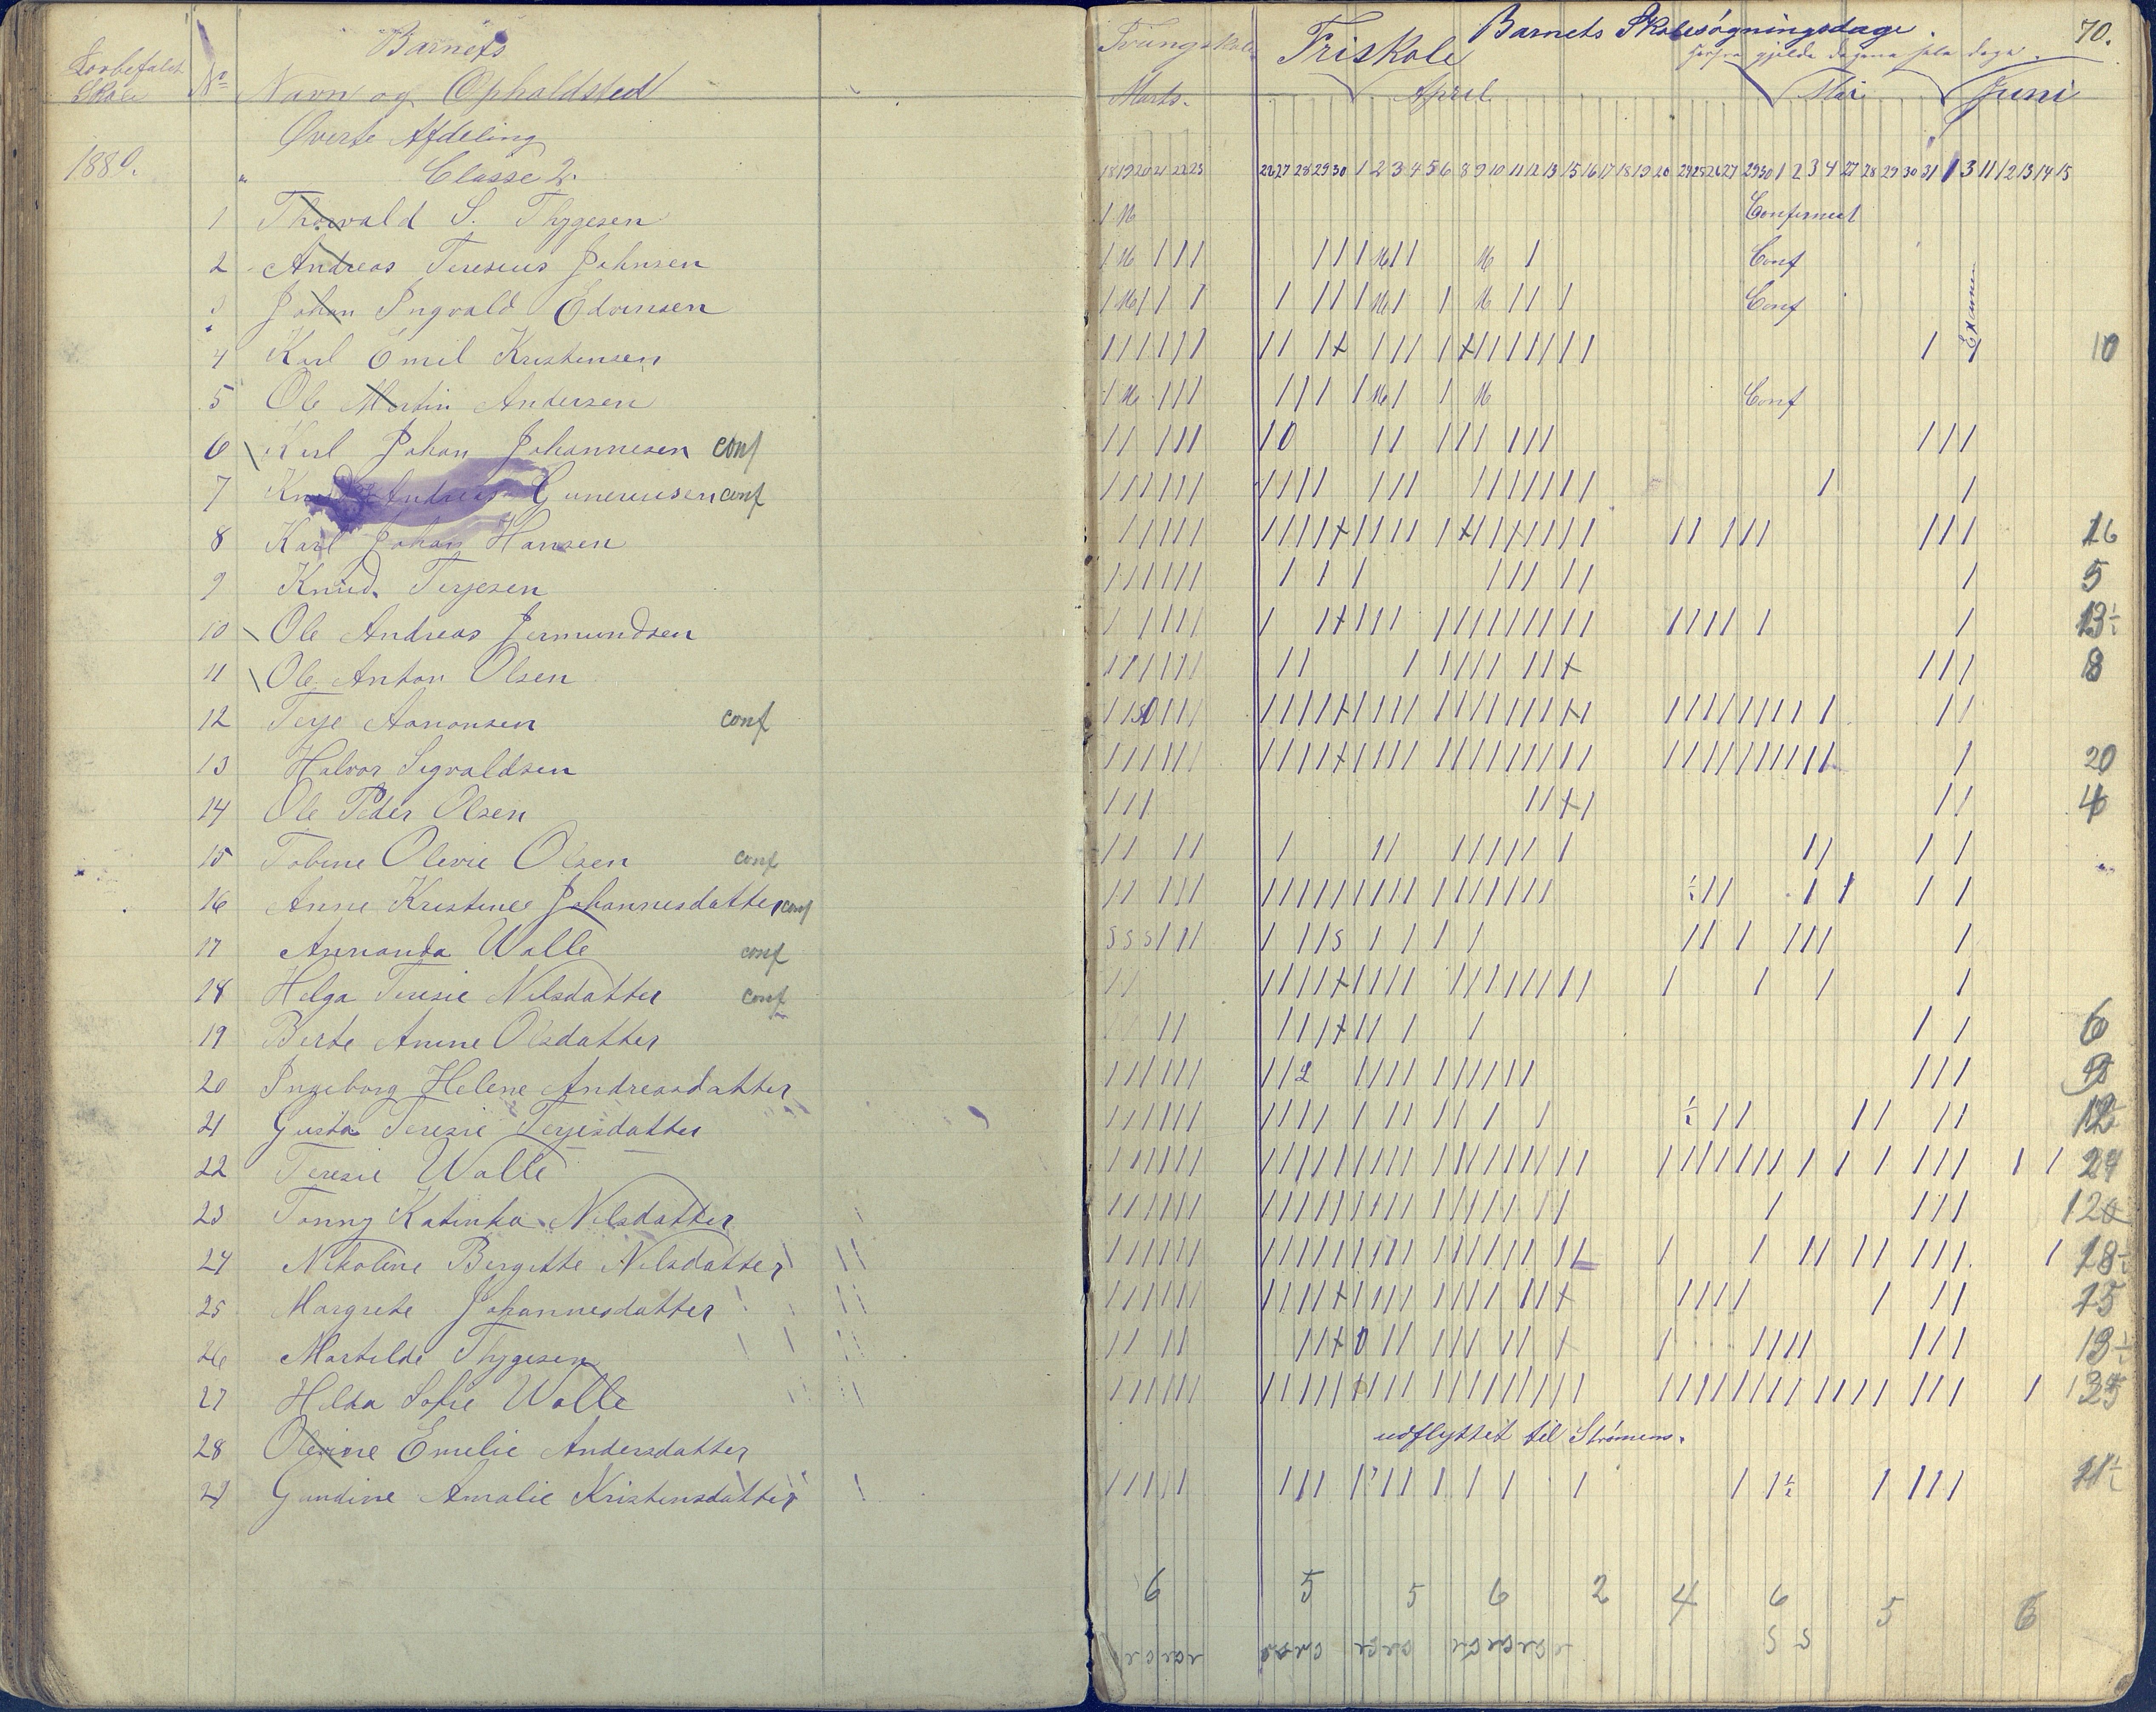 Barnets
Lovbefalet
Skole
No Navn og Opholdsted
Øverste Afdeling
1889.
" Classe 2.
1 Thorvald S. Thygesen
2 Andreas Teresius Johnsen
3 Johan Ingvald Edvinsen
4 Karl Emil Kristensen
5 Ole Martin Andersen
6 Karl Johan Johannesen conf
7 Knud Andreas Gunerussen conf
8 Karl Johan Hansen
9 Knud Terjesen
10 Ole Andreas Jermundsen
11 Ole Anton Olsen
12 Terje Aanonsen conf
13 Halvor Sigvaldsen
14 Ole Peder Olsen
15 Tobine Olevie Olsen conf
16 Anne Kristine Johannesdatter conf
17 Annanda Walle conf
18 Helga Teresie Nilsdatter conf
19 Berte Anine Olsdatter
20 Ingeborg Helene Andreasdatter
21 Gusta Teresie Terjesdatter
22 Teresie Walle
23 Tonny Katinka Nilsdatter
24 Nikoline Bergitte Nilsdatter
25 Margrete Johannesdatter
26 Martilde Thygesen
27 Hilda Sofie Walle
28 Olevine Emelie Andersdatter
29 Gundine Amalie Kristensdatter
70.
Tvungskole Friskole Barnets Skolesøgningsdage.
Herfra gjelde dagene hele dage.
Marts. April Mai Juni
18 19 20 21 22 23 26 27 28 29 30 1 2 3 4 5 6 8 9 10 11 12 13 15 16 17 18 19 20 24 25 26 27 29 30 1 2 3 4 27 28 29 30 31 1 3 11 12 13 14 15
Confirmert
Conf
Conf
Examen
10
Conf
16
5
13½
8
20
4
6
9
12
24
12
18½
15
13½
25
udflyttet til Strømens.
11½
6 5 5 6 2 4 6 5 6
S S